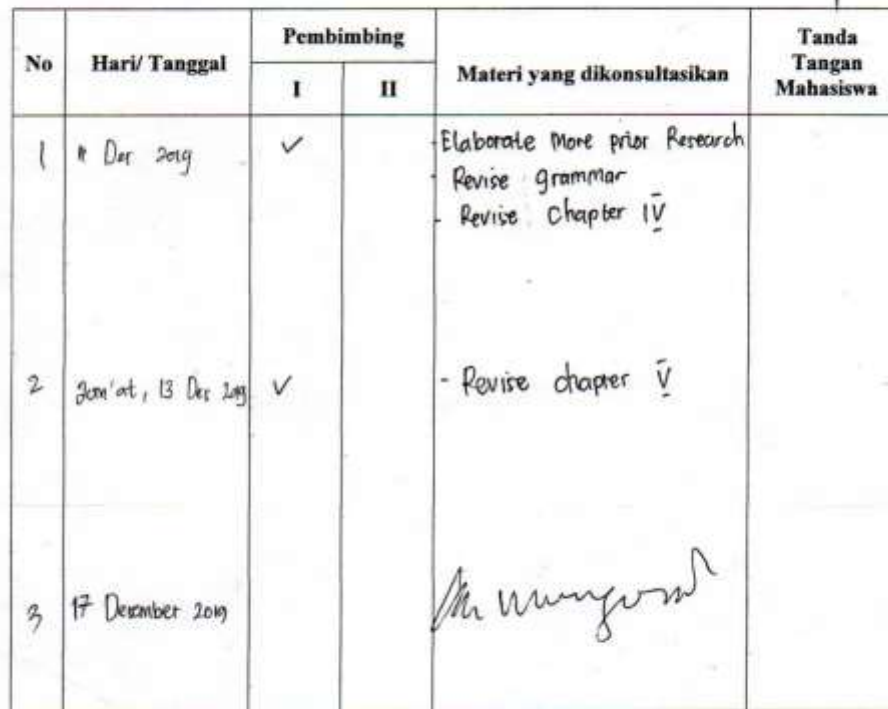 No Hari/ Tanggal Pembimbing Materi yang dikonsultasikan Tanda Tangan Mahasiswa
I II
1 11 Des 2019 ✓ - Elaborate More prior Research
- Revise grammar
- Revise Chapter IV
2 Jum'at, 13 Des 2019 ✓ - Revise chapter V
3 17 Desember 2019